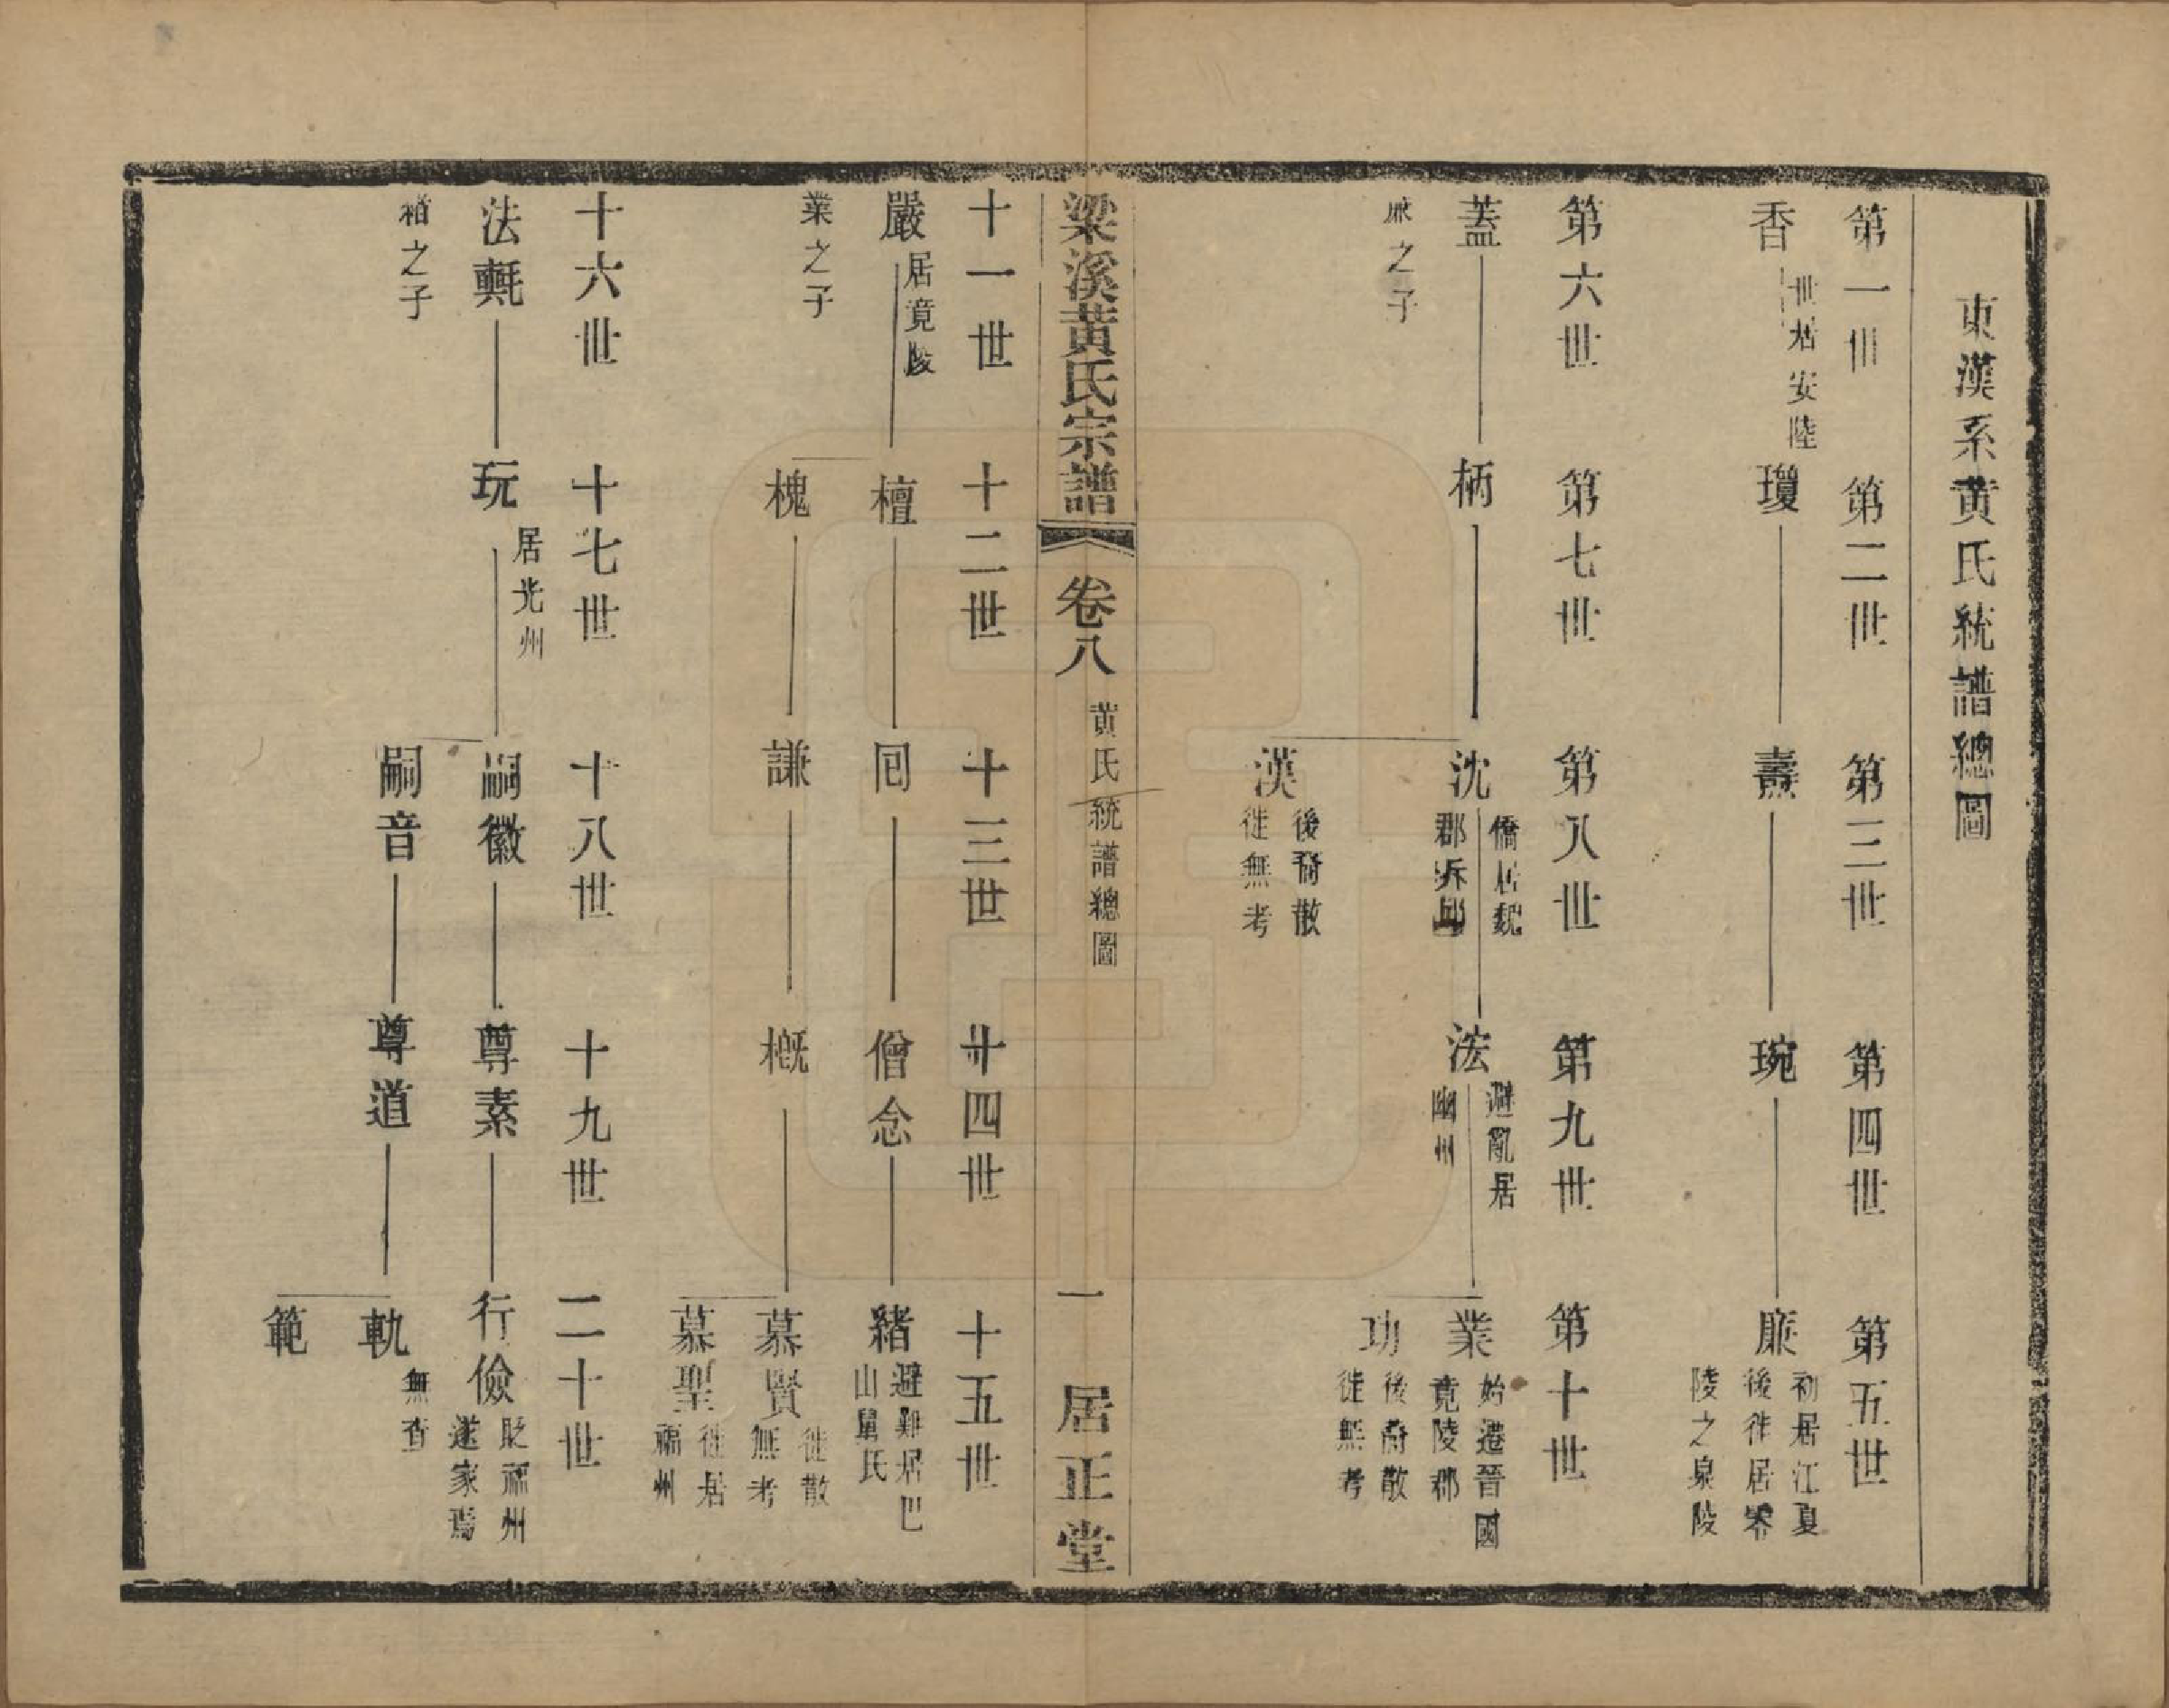 東漢系黄氏統譜總圖
第一世　第二世　第三世　第四世　第五世
香　世居安陸　瓊　燾　琬　廉　初居江夏
後徃居零
陵之泉陵
第六世　第七世　第八世　第九世　第十世
蓋　柄　沈　僑居魏
郡　浤　避亂居
幽州　業　始遷晉國
竟陵郡
廉之子　漢　後裔散
徙無考　功　後裔散
徙無考
梁溪黄氏宗譜　卷八　黄氏統譜總圖　一　居正堂
十一世　十二世　十三世　十四世　十五世
嚴　居竟陵　檀　囘　僧念　緒　避難居巴
山舅氏
業之子　槐　謙　概　慕賢　徙散
無考
慕聖　徙居
福州
十六世　十七世　十八世　十九世　二十世
法　玩　居光州　嗣徽　尊素　行儉　貶福州
遂家焉
之子　嗣音　尊道　軌　無查
範